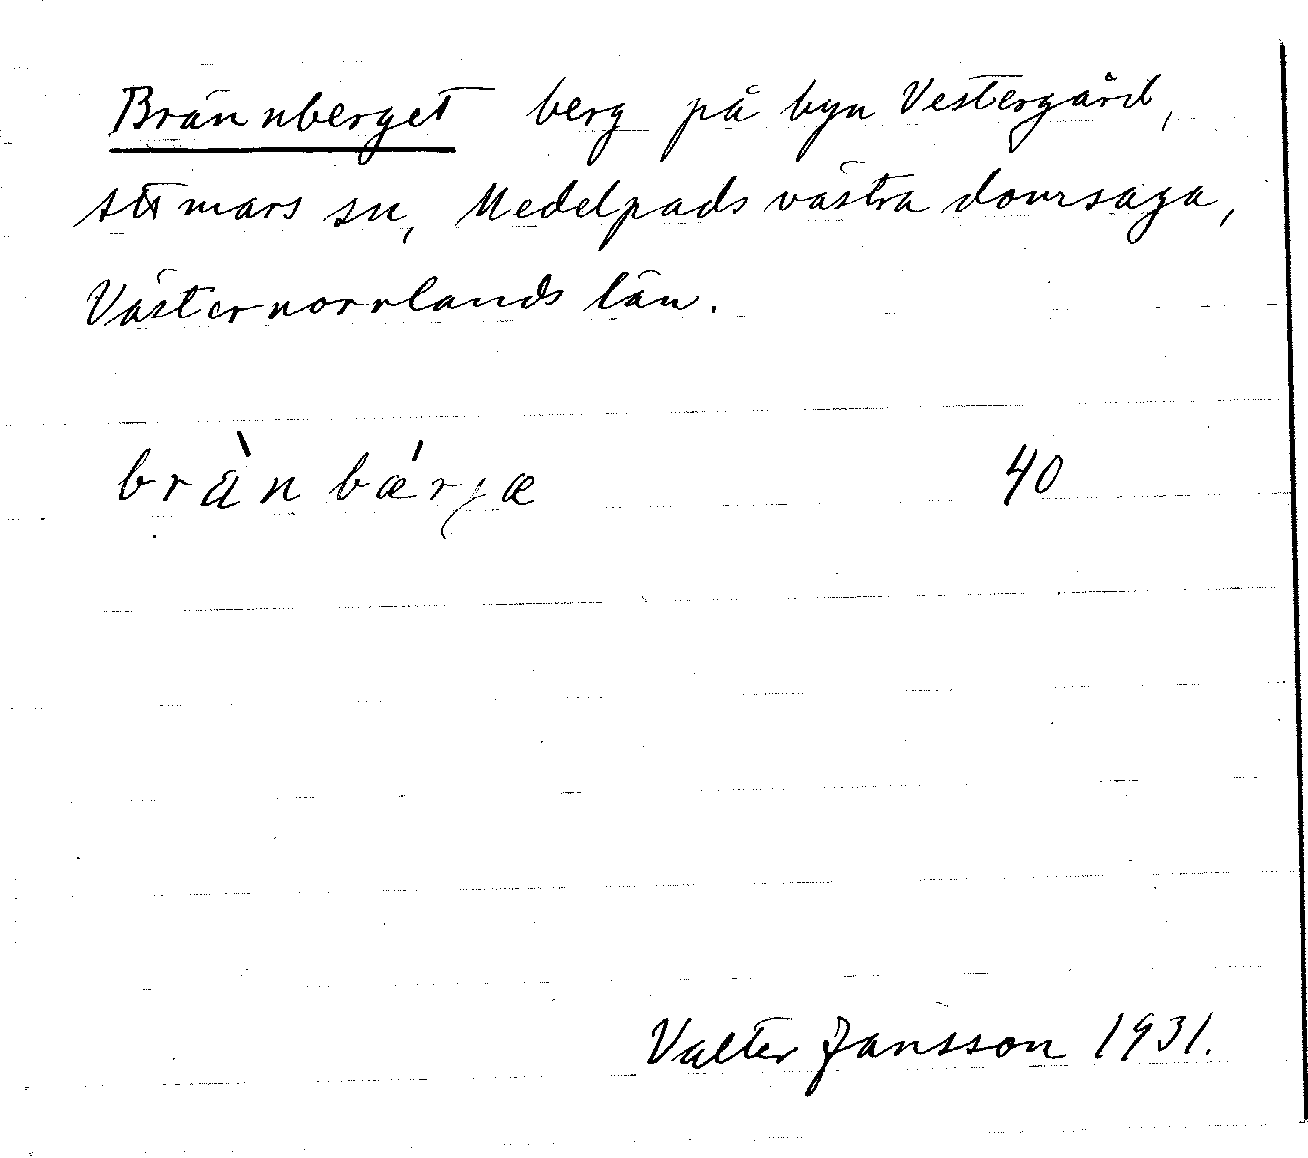 Brännberget berg på byn Vestergård,
Attmars sn, Medelpads västra domsaga,
Västernorrlands län.
brä̀nbǽrjæ 40
Valter Jansson 1931.